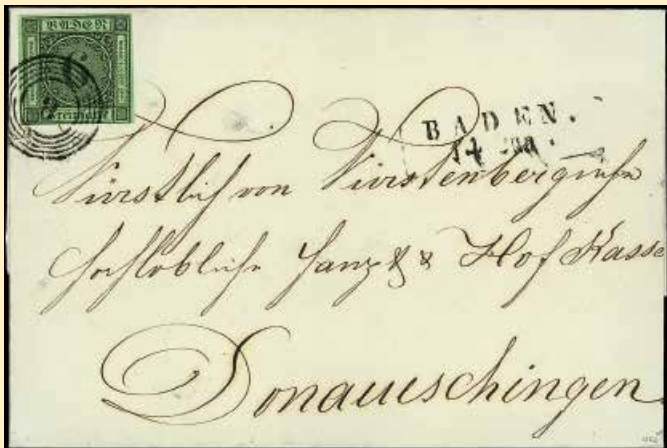 BADEN
Freimarke
BADEN.
Fürstlich von Fürstenbergische
Hochlöbliche Haupt & Hof Kasse
Donaueschingen